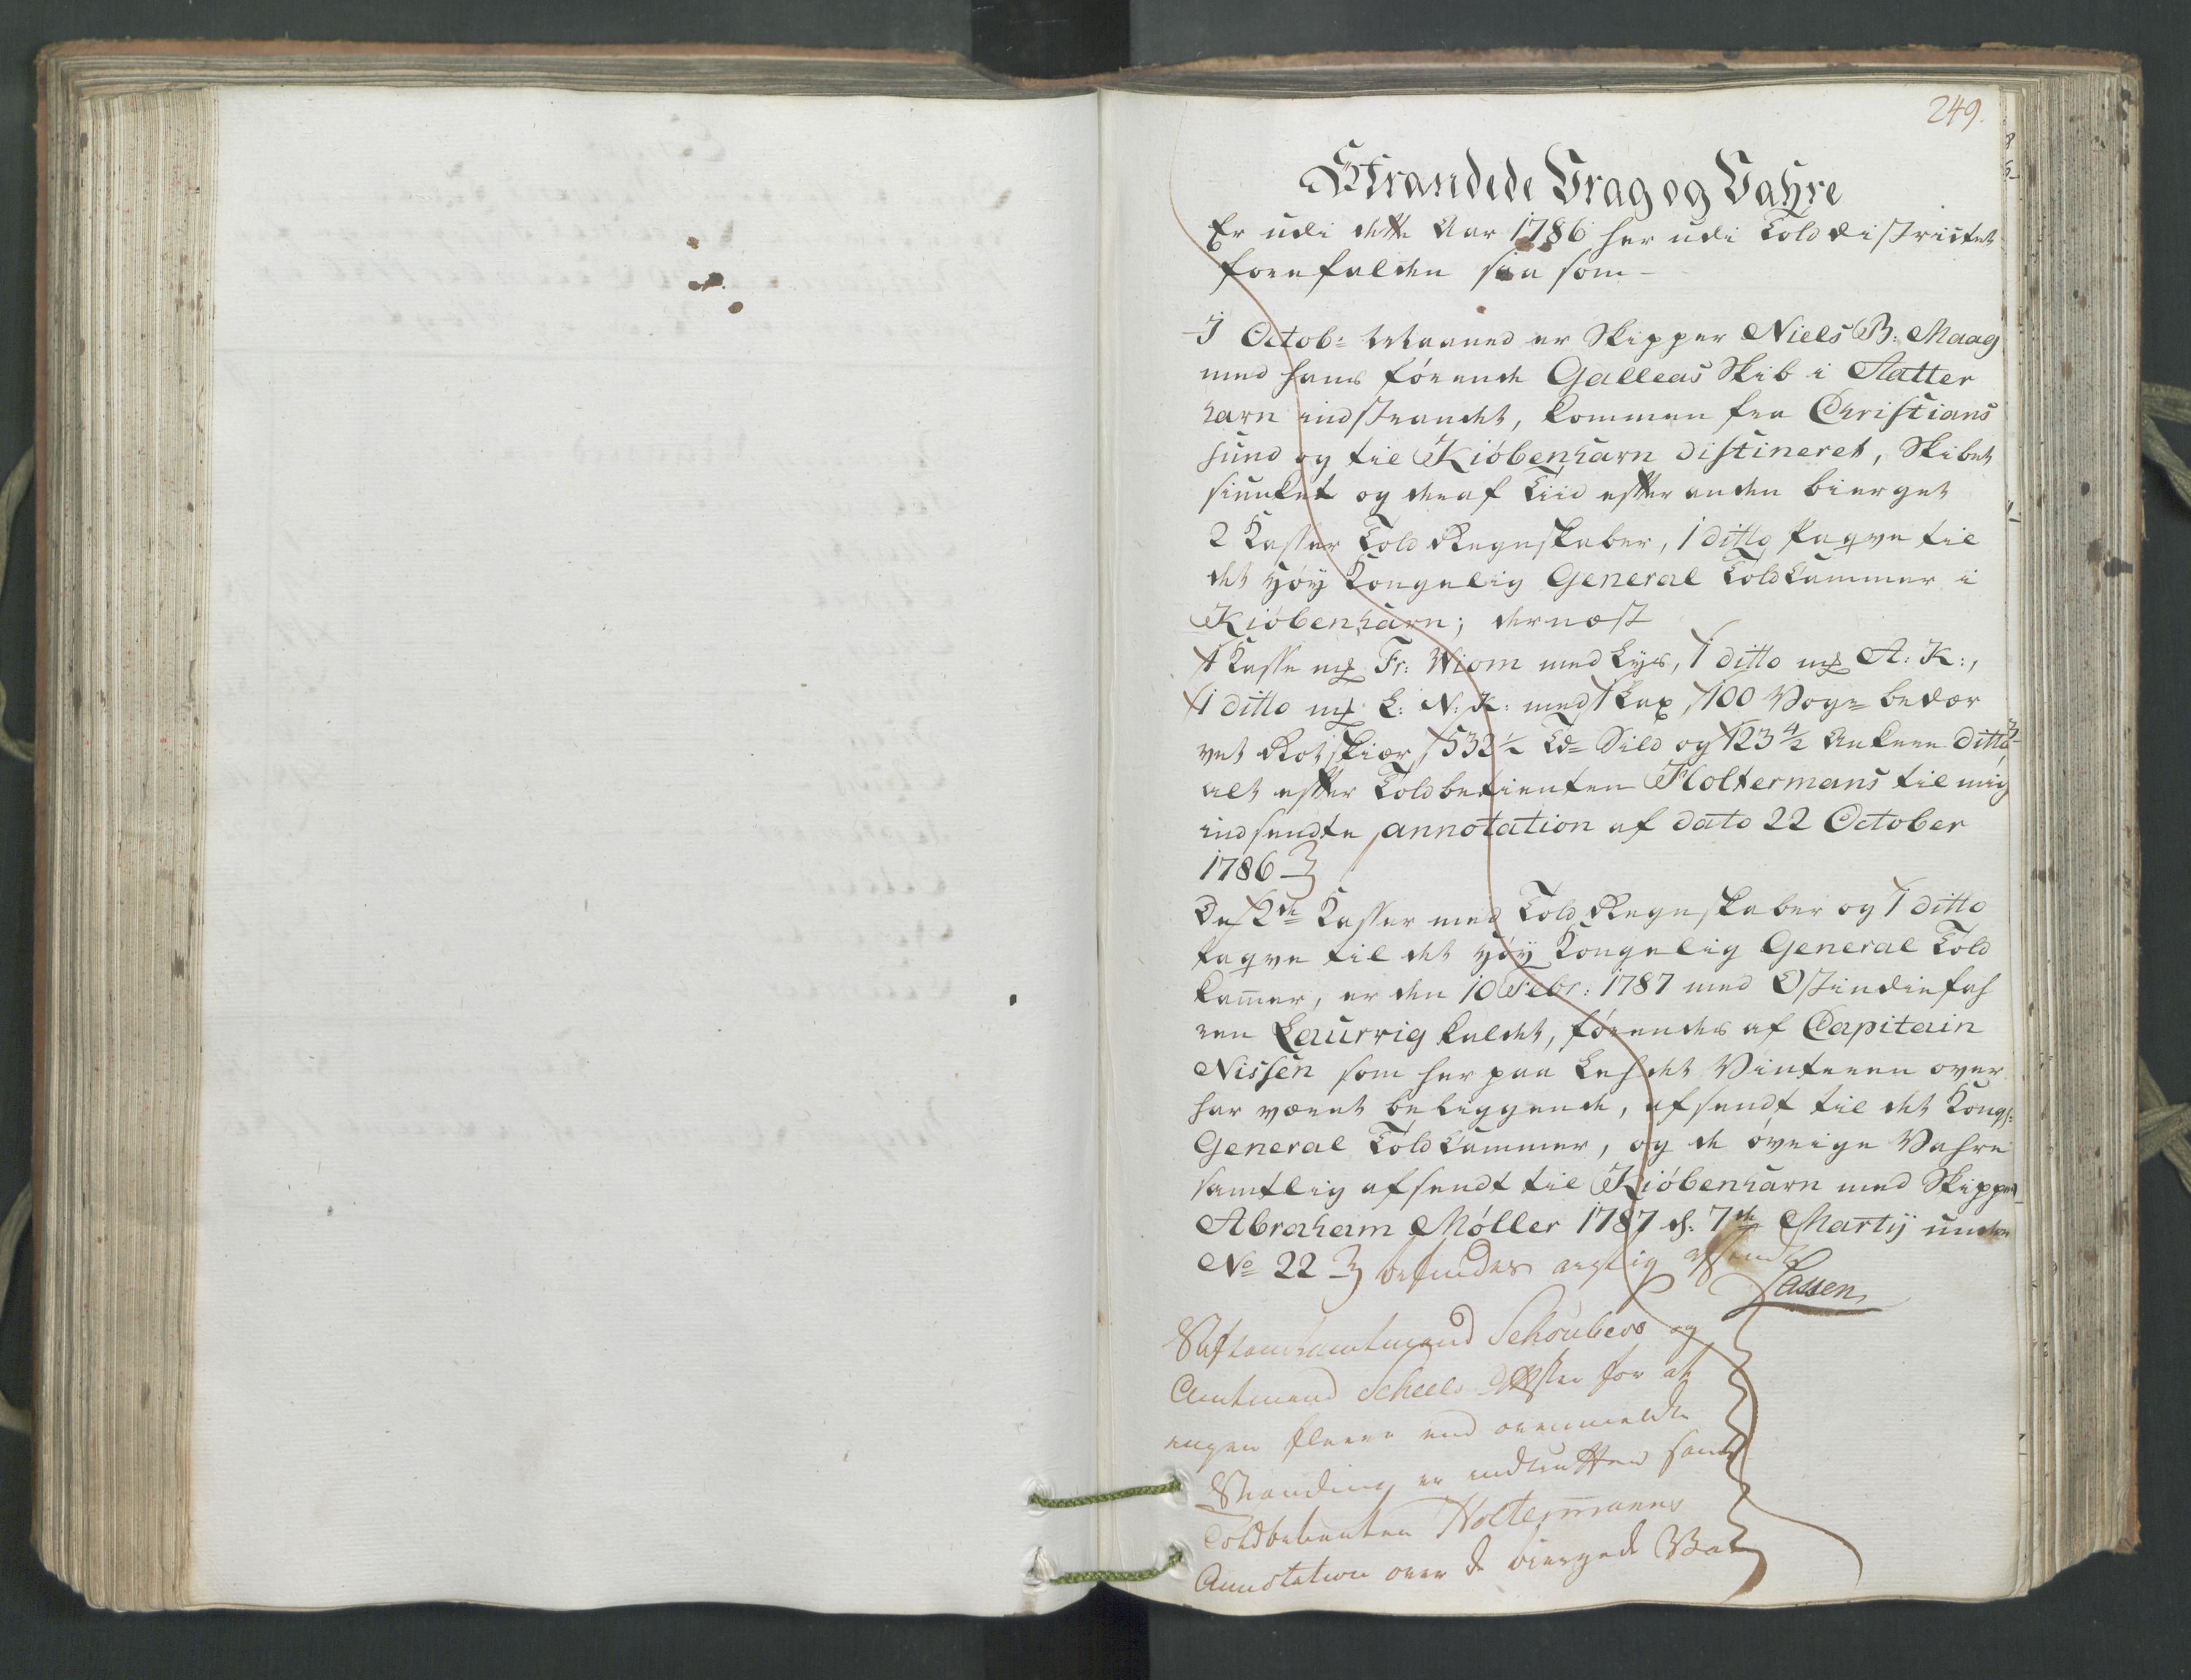 249.
Strandede Vrag og Vahre
Er udi dette Aar 1786 her udi Told districtet
forefalden saa som -
I Octob: Maaned er Skipper Niels B: Maag
med hans førende Galleas Skib i Flatter
havn indstrandet, kommen fra Christians
sund og til Kiöbenhavn distineret, Skibet
siunket og deraf Tiid efter anden bierget
2 Kasser Told Regnskaber, 1 ditto paqve til
det Høy Kongelig General Toldkammer i
Kiöbenhavn; dernæst
1 Kasse mk Fr: Wiom med Lys, 1 ditto mk A: K:,
1 ditto mk L: N: K: med 1 kax, 100 Vog= bedær
vet Rotskiær, 532½ Td= Sild og 123 4/2 Ankere ditto
alt efter Toldbetienten Holtermans til mig
indsendte annotation af dato 22 October
1786
De 2de Kasser med Told Regnskaber og 1 ditto
paqve til det Høy Kongelig General Told
kam̄er, er den 10 Febr: 1787 med Ostindiefah
ren Laurvig kaldet, førendes af Capitain
Nissen som her paa Lehdet Vinteren over
har været beliggende, afsendt til det Kongl:
General Toldkammer, og de øvrige Vahre
samtlig afsendt til Kiöbenhavn med Skipper
Abraham Møller 1787 d. 7de Martij under
No 22 befindes rigtig afsendt
Lassen
Stiftamtmand Schoubers og
Amtmand Scheels Attester for at
ingen fleere end ovenmeldte
Stranding er indtruffen samt
Toldbetienten Holtermanns
Annotation over de biergede Va